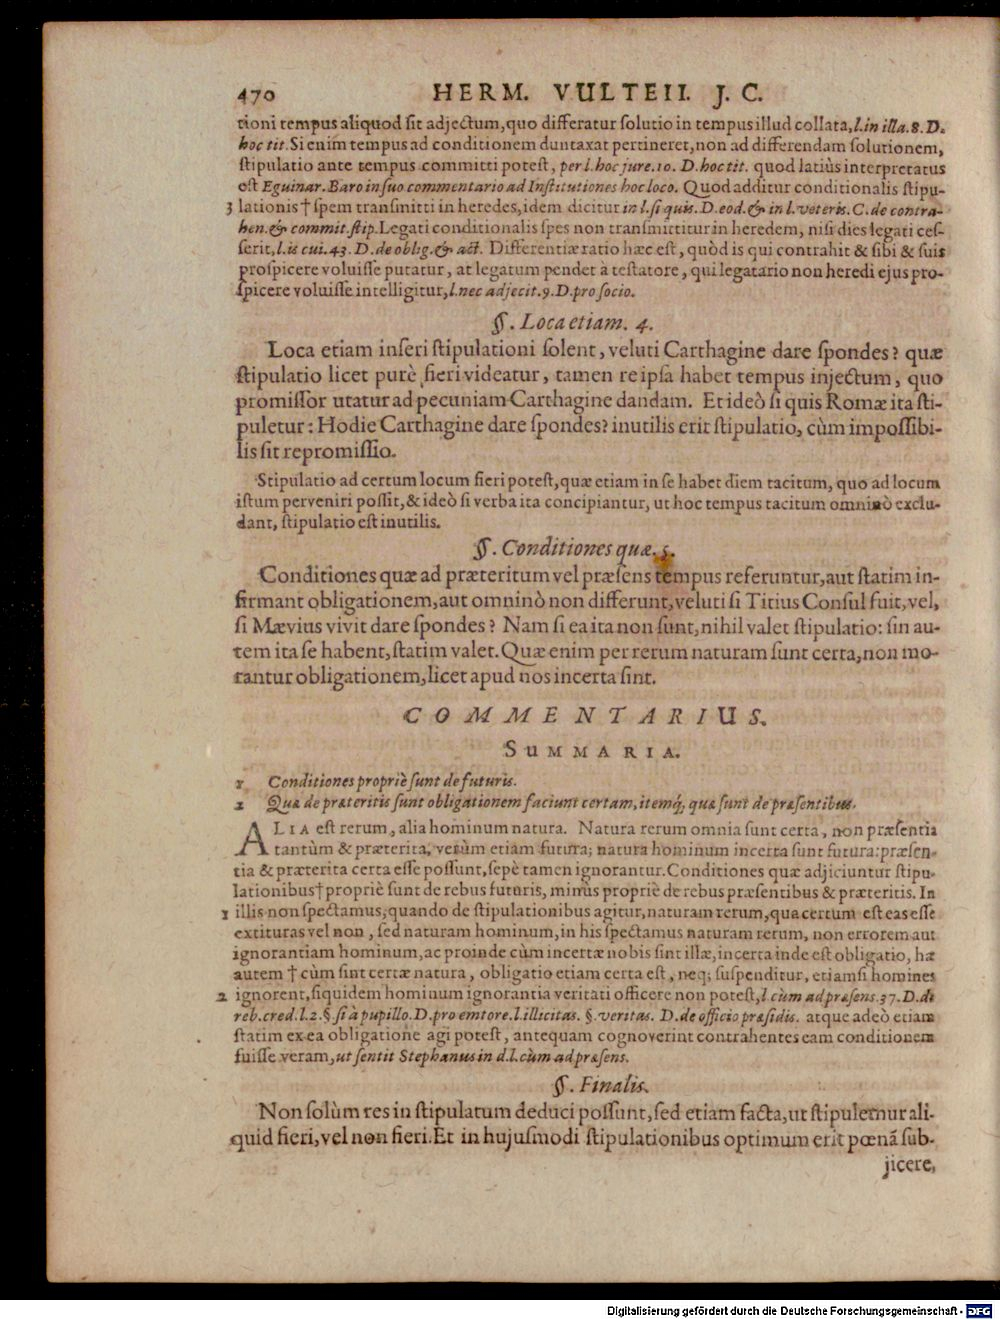 470 HERM. VULTEII. J. C.
tioni tempus aliquod ſit adjectum, quo differatur ſolutio in tempus illud collata, l. in illa. 8. D.
hoc tit. Si enim tempus ad conditionem duntaxat pertineret, non ad differendam ſolutionem,
ſtipulatio ante tempus committi poteſt, per l. hoc jure. 10. D. hoc tit. quod latiùs interpretatus
eſt Eguinar. Baro in ſuo commentario ad Inſtitutiones hoc loco. Quod additur conditionalis ſtipu-
3 lationis † ſpem tranſmitti in heredes, idem dicitur in l. ſi quis. D. eod. & in l. veteris. C. de contra-
hen. & commit. ſtip. Legati conditionalis ſpes non tranſmittitur in heredem, niſi dies legati ceſ-
ſerit, l. is cui. 43. D. de oblig. & act. Differentiæ ratio hæc eſt, quòd is qui contrahit & ſibi & ſuis
proſpicere voluiſſe putatur, at legatum pendet à teſtatore, qui legatario non heredi ejus pro-
ſpicere voluiſſe intelligitur, l. nec adjecit. 9. D. pro ſocio.
§. Loca etiam. 4.
Loca etiam inſeri ſtipulationi ſolent, veluti Carthagine dare ſpondes? quæ
ſtipulatio licet purè fieri videatur, tamen re ipſa habet tempus injectum, quo
promiſſor utatur ad pecuniam Carthagine dandam. Et ideò ſi quis Romæ ita ſti-
puletur: Hodie Carthagine dare ſpondes? inutilis erit ſtipulatio, cùm impoſſibi-
lis ſit repromiſſio.
Stipulatio ad certum locum fieri poteſt, quæ etiam in ſe habet diem tacitum, quo ad locum
iſtum perveniri poſſit, & ideò ſi verba ita concipiantur, ut hoc tempus tacitum omninò exclu-
dant, ſtipulatio eſt inutilis.
§. Conditiones quæ. 5.
Conditiones quæ ad præteritum vel præſens tempus referuntur, aut ſtatim in-
firmant obligationem, aut omninò non differunt, veluti ſi Titius Conſul fuit, vel,
ſi Mævius vivit dare ſpondes? Nam ſi ea ita non ſunt, nihil valet ſtipulatio: ſin au-
tem ita ſe habent, ſtatim valet. Quæ enim per rerum naturam ſunt certa, non mo-
rantur obligationem, licet apud nos incerta ſint.
COMMENTARIUS.
SUMMARIA.
1 Conditiones propriè ſunt de futuris.
2 Quæ de præteritis ſunt obligationem faciunt certam, itemq́; quæ ſunt de præſentibus.
ALIA eſt rerum, alia hominum natura. Natura rerum omnia ſunt certa, non præſentia
tantùm & præterita, verùm etiam futura; natura hominum incerta ſunt futura: præſen-
tia & præterita certa eſſe poſſunt, ſepè tamen ignorantur. Conditiones quæ adjiciuntur ſtipu-
lationibus † propriè ſunt de rebus futuris, minùs propriè de rebus præſentibus & præteritis. In
1 illis non ſpectamus, quando de ſtipulationibus agitur, naturam rerum, qua certum eſt eas eſſe
extituras vel non, ſed naturam hominum, in his ſpectamus naturam rerum, non errorem aut
ignorantiam hominum, ac proinde cùm incertæ nobis ſint illæ, incerta inde eſt obligatio, hæ
autem † cùm ſint certæ natura, obligatio etiam certa eſt, neq; ſuſpenditur, etiamſi homines
2 ignorent, ſiquidem hominum ignorantia veritati officere non poteſt, l. cùm ad præſens. 37. D. de
reb. cred. l. 2. §. ſi à pupillo. D. pro emtore. l. illicitas. §. veritas. D. de officio præſidis. atque adeò etiam
ſtatim ex ea obligatione agi poteſt, antequam cognoverint contrahentes eam conditionem
fuiſſe veram, ut ſentit Stephanus in d. l. cùm ad præſens.
§. Finalis.
Non ſolùm res in ſtipulatum deduci poſſunt, ſed etiam facta, ut ſtipulemur ali-
quid fieri, vel non fieri. Et in hujuſmodi ſtipulationibus optimum erit pœnã ſub-
jicere,
Digitalisierung gefördert durch die Deutsche Forschungsgemeinschaft - DFG